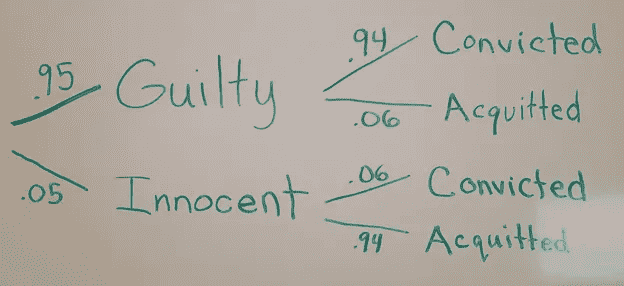 .95 Guilty .94 Convicted
.06 Acquitted
.05 Innocent .06 Convicted
.94 Acquitted